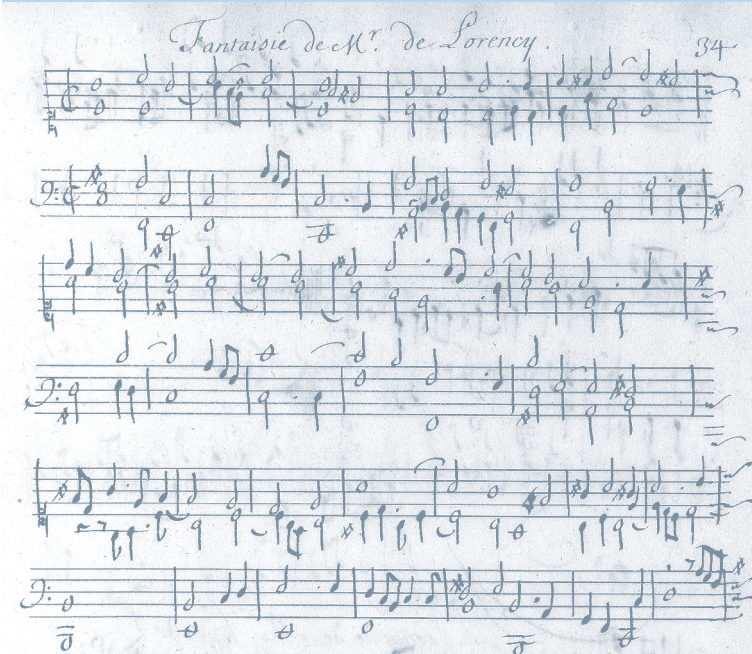 Fantaisie de Mr. de Lorency.
34